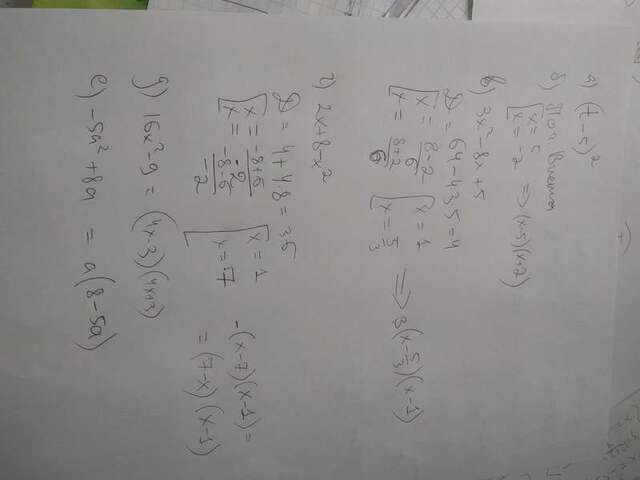 а) (t-5)²
б) По т. Виета
[x=5 [x=-2 => (x-5)(x+2)
в) 3x²-8x+5
D = 64-4·3·5=4
[x = 8-2/6 [x = 8+2/6 [x=1 [x=5/3 => 3(x-5/3)(x-1)
г) 2x+8-x²
D = 4+4·8=36
[x = -8+6/-2 [x = -8-6/-2 [x=1 [x=7 -(x-7)(x-1)=
=(7-x)(x-1)
д) 16x²-9 = (4x-3)(4x+3)
е) -5a²+8a = a(8-5a)